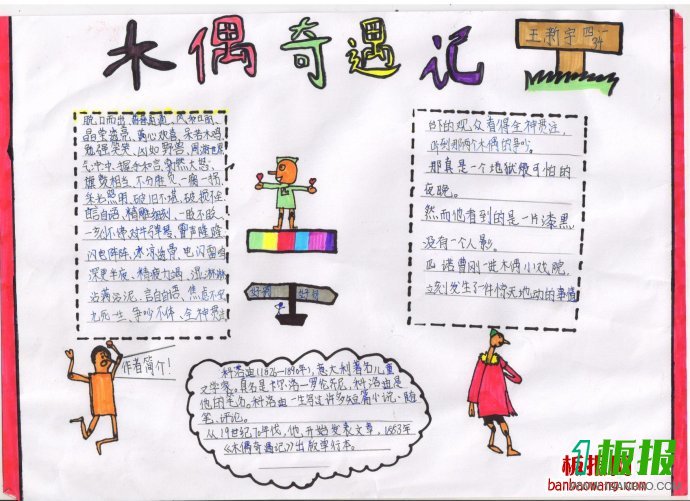 木偶奇遇记
王新宇四
脱口而出、风和日丽、
晶莹透亮、满心欢喜、呆若木鸡
勉强笑笑、凶如野兽、周游世界
气冲冲、握手和言、勃然大怒、
旗鼓相当、不分胜负、一瘸一拐、
破旧不堪、破损不全
言自语、精雕细刻、一眨不眨、
一刻不停、对牛弹琴、雷声隆隆
闪电阵阵、寒凉、电闪雷鸣
深更半夜、精疲力竭、湿淋淋
沾满污泥、言自自语、焦虑不安
九死一生、争吵不休、全神贯注
台下的观众看得全神贯注,
听到那两个木偶的争吵。
那真是一个地狱般可怕的
夜晚。
然而他看到的是一片漆黑
没有一个人影。
匹诺曹刚一进木偶小戏院,
立刻发生了一件惊天地动的事情
好看
好词
作者简介!
科洛迪(1826—1890年),意大利著名儿童
文学家。真名是卡尔洛—罗伦齐尼,科洛迪是
他的笔名。科洛迪一生写过许多短篇小说、随
笔、评论。
从19世纪70年代,他开始发表文章,1883年
《木偶奇遇记》出版单行本。
板报
板报网
banbaowang.com